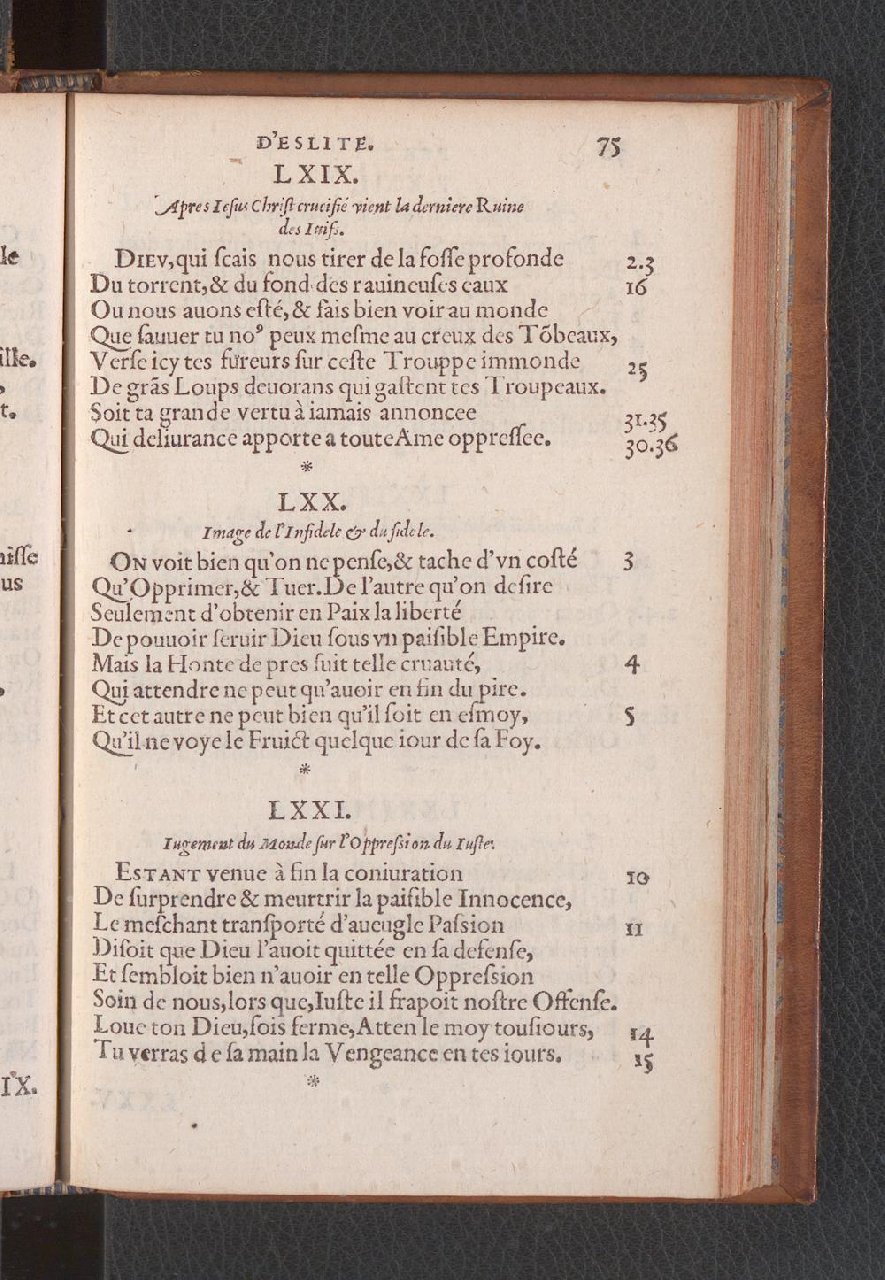 le
ille.
,
t.
aisse
us
,
IX.
D'ESLITE. 75
LXIX.
Apres Iesus Christ crucifié vient la derniere Ruine
des Iuifs.
DIEV, qui ſcais nous tirer de la foſſe profonde 2.3
Du torrent, & du fond des rauineuſes eaux 16
Ou nous auons eſté, & fais bien voir au monde
Que ſauuer tu noꝰ peux meſme au creux des Tõbeaux,
Verſe icy tes fureurs ſur ceſte Trouppe immonde 25
De grãs Loups deuorans qui gaſtent tes Troupeaux.
Soit ta grande vertu à iamais annoncee 31.35
Qui deliurance apporte a toute Ame oppreſſee. 30.36
*
LXX.
Image de l'Infidele & du fidele.
ON voit bien qu'on ne penſe, & tache d'vn coſté 3
Qu'Opprimer, & Tuer. De l'autre qu'on deſire
Seulement d'obtenir en Paix la liberté
De pouuoir ſeruir Dieu ſous vn paiſible Empire.
Mais la Honte de pres ſuit telle cruauté, 4
Qui attendre ne peut qu'auoir en fin du pire.
Et cet autre ne peut bien qu'il ſoit en eſmoy, 5
Qu'il ne voye le Fruict quelque iour de ſa Foy.
*
LXXI.
Iugement du Monde ſur l'Oppreſsion du Iuſte.
ESTANT venue à fin la coniuration 10
De ſurprendre & meurtrir la paiſible Innocence,
Le meſchant tranſporté d'aueugle Paſsion 11
Diſoit que Dieu l'auoit quittée en ſa defenſe,
Et ſembloit bien n'auoir en telle Oppreſsion
Soin de nous, lors que, Iuſte il frapoit noſtre Offenſe.
Loue ton Dieu, ſois ferme, Atten le moy touſiours, 14
Tu verras de ſa main la Vengeance en tes iours. 15
*